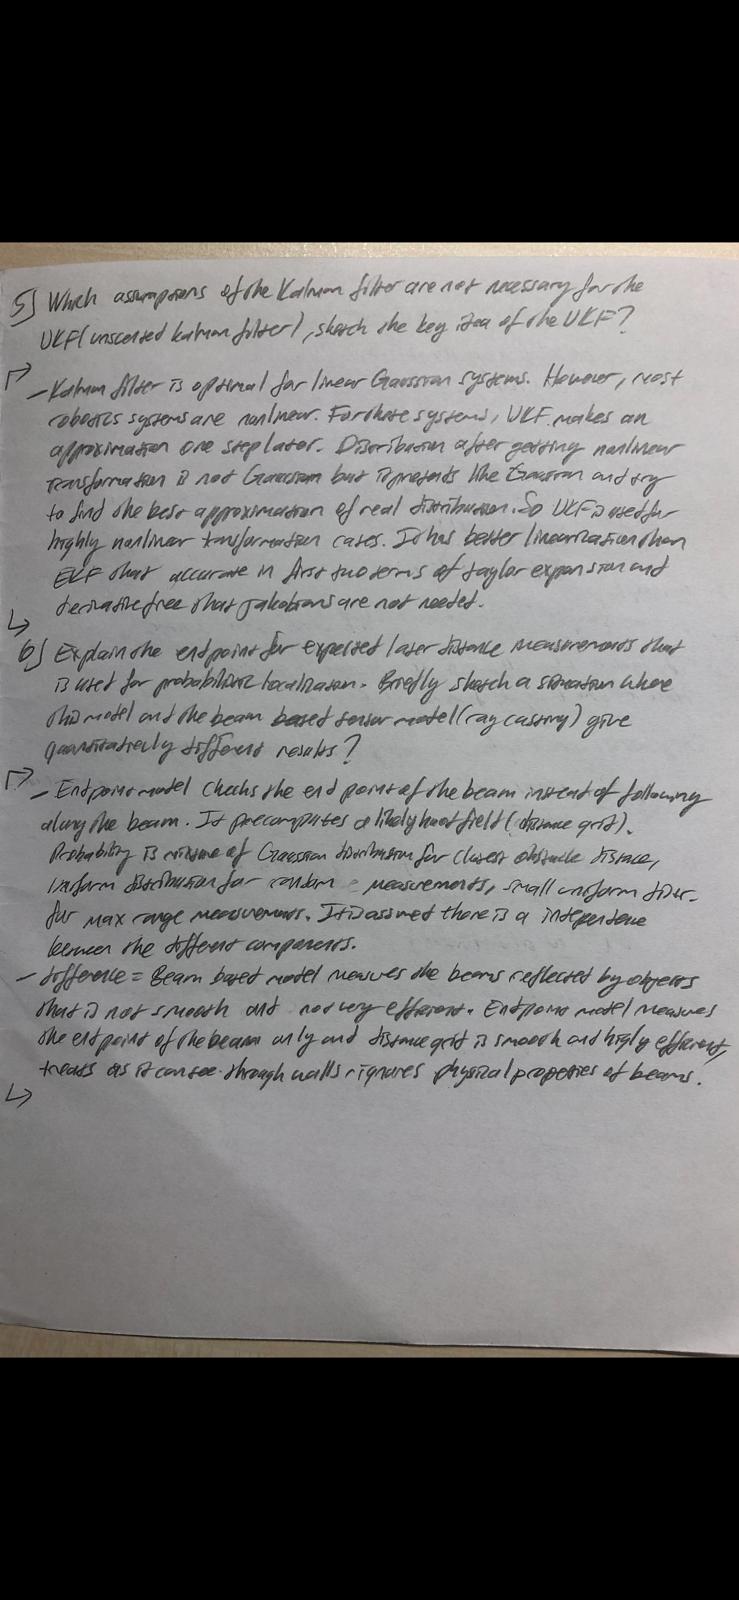 5) Which assumptions of the Kalman filter are not necessary for the
UKF (unscented kalman filter), sketch the key idea of the UKF?
- Kalman filter is optimal for linear Gaussian systems. However, most
robotics systems are nonlinear. For these systems, UKF makes an
approximation one step later. Distribution after getting nonlinear
transformation is not Gaussian but it pretends like Gaussian and try
to find the best approximation of real distribution. So UKF is used for
highly nonlinear transformation cases. It has better linearization than
EKF that accurate in first two terms of taylor expansion and
derivative free that jakobians are not needed.
6) Explain the endpoint for expected laser distance measurements that
is used for probabilistic localization. Briefly sketch a situation where
this model and the beam based sensor model (ray casting) give
quantitatively different results?
- Endpoint model checks the end point of the beam instead of following
along the beam. It precomputes a likelyhood field (distance grid).
Probability is mixture of Gaussian distribution for closest obstacle distance,
uniform distribution for random measurements, small uniform distr.
for max range measurements. It is assumed there is a independence
between the different components.
- difference = Beam based model measures the beams reflected by objects
that is not smooth and not very efficient. Endpoint model measures
the endpoint of the beam only and distance grid is smooth and higly efficient,
treats as it can see through walls ignores physical properties of beams.